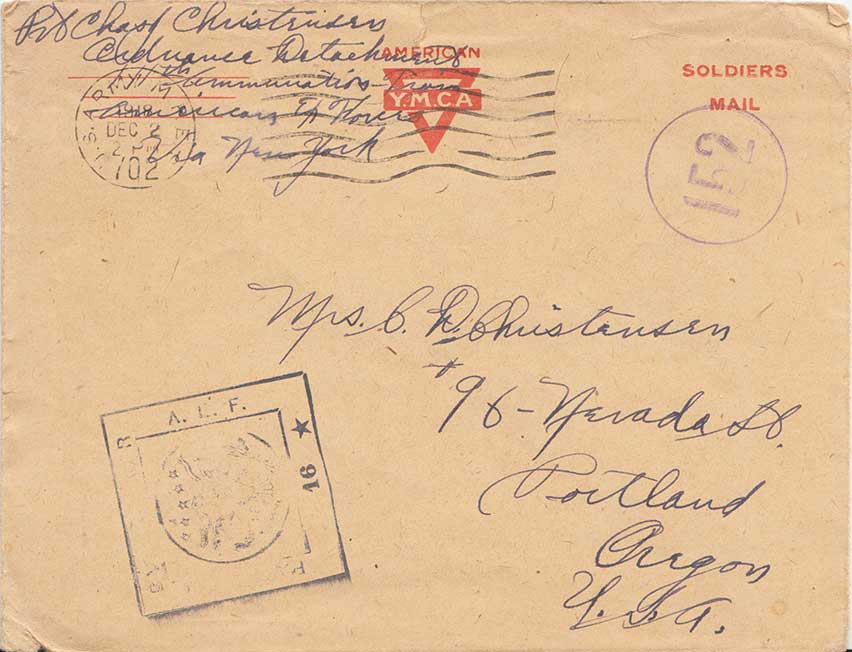 Pvt Chas Christensen
Ordnance Detachment
7th Ammunition Train
American Ex Forces
Via New York
1918
DEC 2
2 PM
702
AMERICAN
Y.M.C.A
SOLDIERS
MAIL
152
Mrs. C. D. Christensen
96 - Nevada St.
Portland
Oregon
U.S.A.
A.E.F.
16